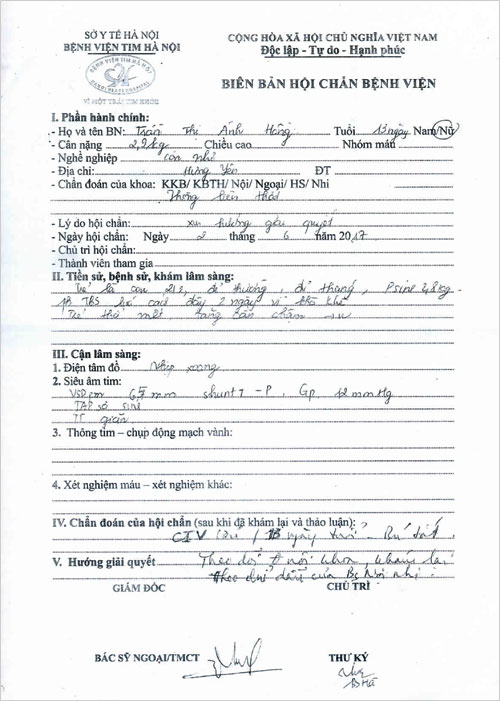 SỞ Y TẾ HÀ NỘI
BỆNH VIỆN TIM HÀ NỘI
BỆNH VIỆN TIM HÀ NỘI
HANOI HEART HOSPITAL
VÌ MỘT TRÁI TIM KHỎE
CỘNG HÒA XÃ HỘI CHỦ NGHĨA VIỆT NAM
Độc lập - Tự do - Hạnh phúc
BIÊN BẢN HỘI CHẨN BỆNH VIỆN
I. Phần hành chính:
- Họ và tên BN: Trần Thị Ánh Hồng Tuổi 13 ngày Nam/Nữ
- Cân nặng 2,9 kg Chiều cao Nhóm máu
- Nghề nghiệp con nhỏ
- Địa chỉ: Hưng Yên ĐT
- Chẩn đoán của khoa: KKB/ KBTH/ Nội/ Ngoại/ HS/ Nhi
Thông liên thất
- Lý do hội chẩn: xin hướng giải quyết
- Ngày hội chẩn: Ngày 2 tháng 6 năm 2017
- Chủ trì hội chẩn:
- Thành viên tham gia
II. Tiền sử, bệnh sử, khám lâm sàng:
Trẻ là con 2/2, đẻ thường, đủ tháng, Psinh 2,8 kg
TBS 2 ngày vì
Trẻ mệt, tăng cân chậm
III. Cận lâm sàng:
1. Điện tâm đồ Nhịp xoang
2. Siêu âm tim:
VSD pm 6,5 mm shunt T-P, Gp 12 mmHg
TAP
TT giãn
3. Thông tim – chụp động mạch vành:
4. Xét nghiệm máu – xét nghiệm khác:
IV. Chẩn đoán của hội chẩn (sau khi đã khám lại và thảo luận):
CIV ngày
V. Hướng giải quyết Theo dõi nội khoa, khám lại
theo của Bs Nội nhi
GIÁM ĐỐC CHỦ TRÌ
BÁC SỸ NGOẠI/TMCT THƯ KÝ